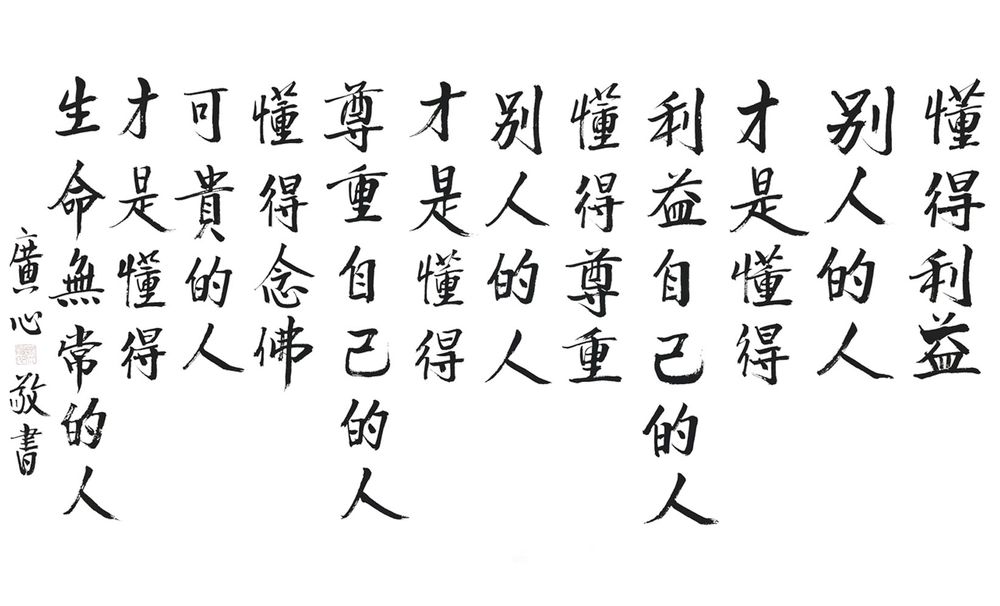 懂得利益
別人的人
才是懂得
利益自己的人
懂得尊重
別人的人
才是懂得
尊重自己的人
懂得念佛
可貴的人
才是懂得
生命無常的人
廣心
敬書